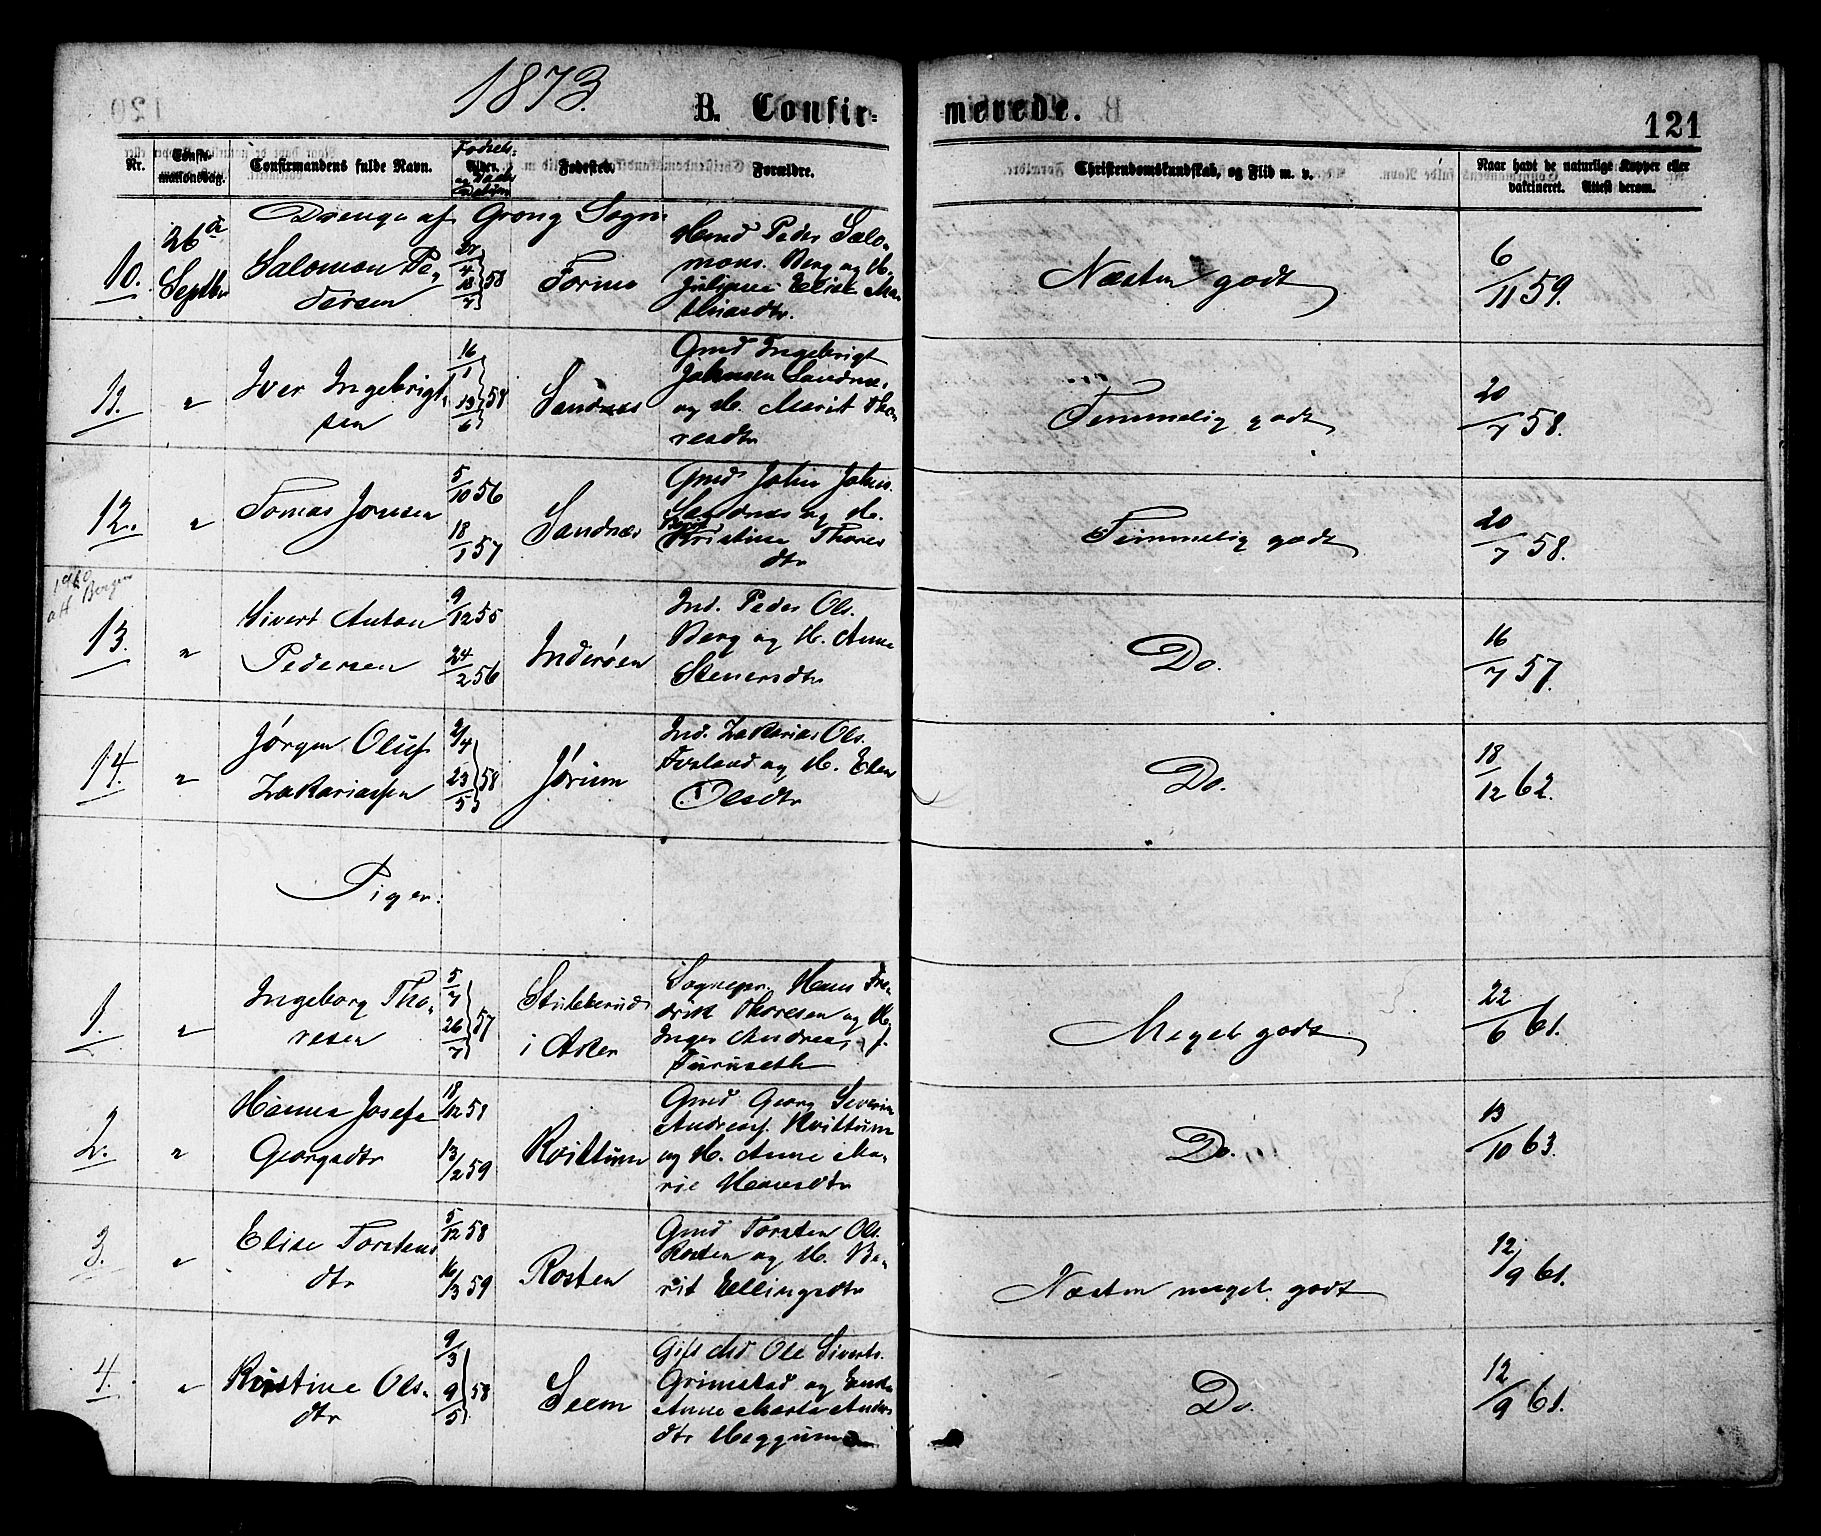 1873.
B. Confir= merede.
121
Nr.
Confir-
mationsdag.
Confirmandens fulde Navn.
Fødsels-
Alder.
og Daabs
Datum
Fødested.
Forældre.
Christendomskundskab, og Flid m. v.
Naar havt de naturlige Kopper eller
vakcineret. Attest derom.
Drenge af Grong Sogn
10.
26de
Septbr
Salomon Pe-
dersen
4
18/7 58
Formo
Peder Salo-
mons. Berg og H.
Juliane Elise Ma-
thiasdtr.
Næsten godt
6/11 59.
11.
"
Iver Ingebrigt-
sen
16/1
13/6 58
Sandnæs
Gmd Ingebrigt
Johnsen Sandnæs
og H. Marit Tho-
resdtr
Temmelig godt
20/7 58.
12.
"
Tomas Jonsen
5/10 56
18/1 57
Sandnæs
Gmd John Johns.
Sandnæs og H.
Kristine Thores
dtr
Temmelig godt
20/7 58.
1920
att Bergen
13.
"
Sivert Anton
Pedersen
9/12 55
24/2 56
Inderøen
Ind. Peder Ols.
Berg og H. Anne
Stenersdtr
Do.
16/7 57.
14.
"
Jørgen Oluf
Zakariassen
2/4
23/5 58
Jørum
Ind. Zakarias Ols.
Fosland og H. Elen
Olsdtr
Do.
18/12 62.
Piger.
1.
"
Ingeborg Tho-
resen
5/7
26/7 57
Stubberud
i Asker
Sognepr. Hans Fre-
drik Thoresen og H.
Inger Andrea, f.
Furuseth
Meget godt
22/6 61.
2.
"
Hanna Josefa
Georgsdtr
18/12 58
13/2 59
Kvittum
Gmd Georg Severin
Andreass. Kvittum
og H. Anne Ma-
rie Hansdtr
Do.
13/10 63.
3.
"
Elise Torstens
dtr
5/12 58
16/3 59
Rosten
Gmd Torsten Ols.
Rosten og H. Be-
rit Ellingsdtr
Næsten meget godt
12/9 61.
4.
"
Kristine Ols-
dtr
9/3
9/5 58
Seem
Gift Ole Siverts.
Grimstad og Enke
Anne Marta Anders
dtr Heggum
Do.
12/9 61.